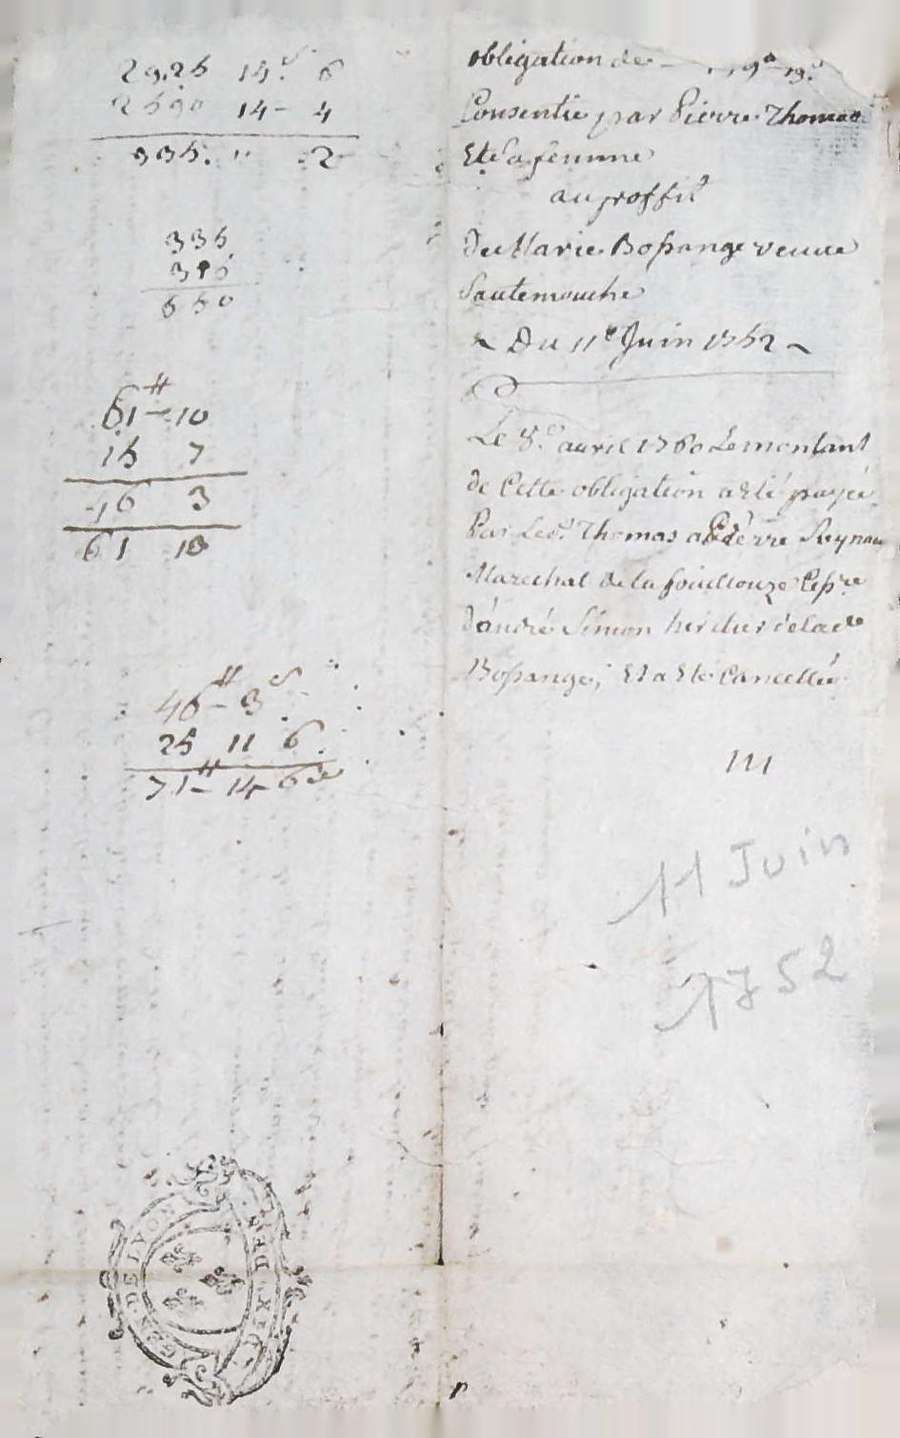 2925 15s 6
2590 14 - 4
335. " 2
335
315
650
61# - 10
15 7
46 3
61 10
46# - 3s
25 11 6
71# - 14 - 6d
obligation de
Consentie par Pierre Thomas
Et Sa femme
au proffit
De Marie Bossange veuve
Sautemouche
~ Du 11e Juin 1752 ~
Le 8e avril 1760 Le montant
de Cette obligation a eté payée
Par Led. Thomas a Pierre Reynau
Marechal de la fouillouze Cessre
d'andré Simon heritier de lade
Bossange, Et a Ete Cancellée
111
11 Juin
1752
GEN. DE LYON
DEUX